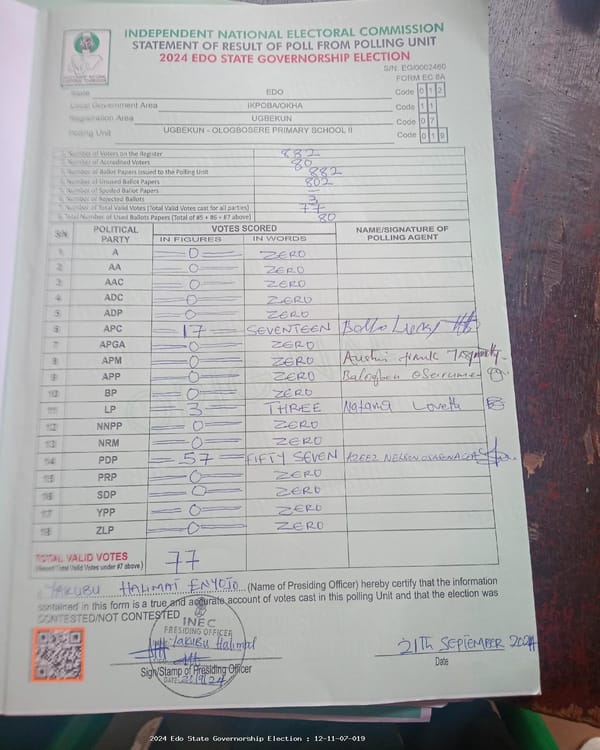 INDEPENDENT NATIONAL ELECTORAL COMMISSION
STATEMENT OF RESULT OF POLL FROM POLLING UNIT
2024 EDO STATE GOVERNORSHIP ELECTION
S/N: EG/0002460
FORM EC 8A
State EDO Code 0 1 2
Local Government Area IKPOBA/OKHA Code 1 1
Registration Area UGBEKUN Code 0 7
Polling Unit UGBEKUN - OLOGBOSERE PRIMARY SCHOOL II Code 0 1 9
1. Number of Voters on the Register 882
2. Number of Accredited Voters 80
3. Number of Ballot Papers Issued to the Polling Unit 882
4. Number of Unused Ballot Papers 802
5. Number of Spoiled Ballot Papers —
6. Number of Rejected Ballots 3
7. Number of Total Valid Votes (Total Valid Votes cast for all parties) 77
8. Total Number of Used Ballots Papers (Total of #5 + #6 + #7 above) 80
S/N POLITICAL PARTY VOTES SCORED NAME/SIGNATURE OF POLLING AGENT
IN FIGURES IN WORDS
1 A 0 ZERO
2 AA 0 ZERO
3 AAC 0 ZERO
4 ADC 0 ZERO
5 ADP 0 ZERO
6 APC 17 SEVENTEEN
7 APGA 0 ZERO
8 APM 0 ZERO
9 APP 0 ZERO
10 BP 0 ZERO
11 LP 3 THREE
12 NNPP 0 ZERO
13 NRM 0 ZERO
14 PDP 57 FIFTY SEVEN AZEEZ NELSON
15 PRP 0 ZERO
16 SDP 0 ZERO
17 YPP 0 ZERO
18 ZLP 0 ZERO
TOTAL VALID VOTES 77
YAKUBU HALIMAT ENYOJO (Name of Presiding Officer) hereby certify that the information
contained in this form is a true and accurate account of votes cast in this polling Unit and that the election was
CONTESTED/NOT CONTESTED
INEC
PRESIDING OFFICER
Yakubu Halimat
Sign/Stamp of Presiding Officer
DATE: 21/9/24
21TH SEPTEMBER 2024
Date
2024 Edo State Governorship Election : 12-11-07-019